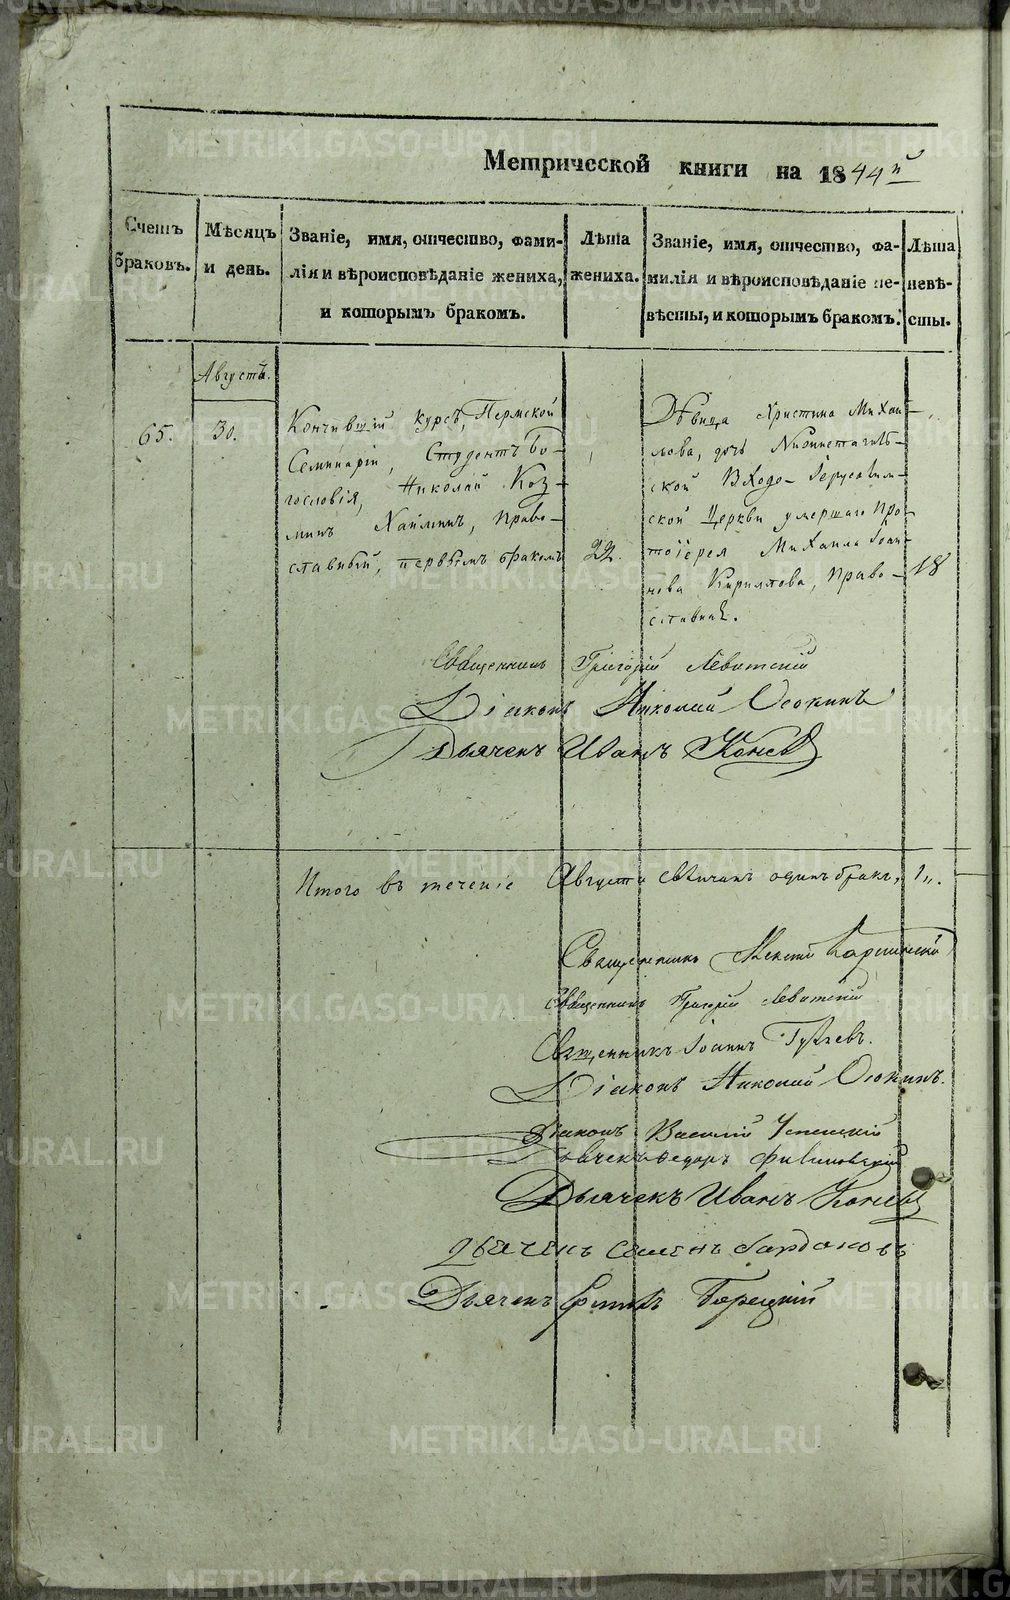 Метрической книги на 1844й
Счетъ браковъ.
Мѣсяцъ и день.
Званіе, имя, отчество, фами-
лія и вѣроисповѣданіе жениха,
и которымъ бракомъ.
Лѣта жениха.
Званіе, имя, отчество, фа-
милія и вѣроисповѣданіе не-
вѣсты, и которымъ бракомъ.
Лѣта невѣ-
сты.
Августъ.
65.
30.
Кончившій курсъ, Пермской
Семинаріи, Студентъ Бо-
гословія, Николай Коз-
минъ, Право-
славный, первымъ бракомъ
22.
Дѣвица Христина Михаи-
лова, дочь Нижнетагиль-
ской Входо-Іерусалим-
ской Церкви умершаго Про-
тоіерея Михаила Іоан-
нова Кирилова, Право-
славная.
18
Священникъ Григорій Левитскій
Діаконъ Николай Осокинъ
Дьячекъ Иванъ Коневъ
Итого въ теченіе Августа вѣнчанъ одинъ бракъ, 1.
Священникъ
Священникъ Григорій Левитскій
Священникъ Іоаннъ
Діаконъ Николай Осокинъ.
Діаконъ Василій Успенскій
Дьячекъ Федоръ
Дьячекъ Иванъ Коневъ
Дьячекъ Семенъ
Дьячекъ Борецкій
METRIKI.GASO-URAL.RU